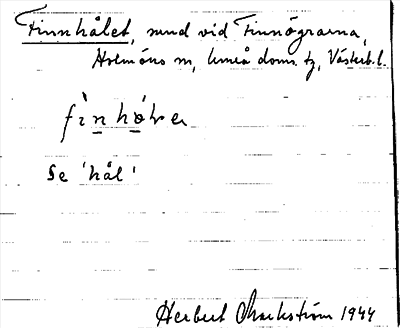 Finnhålet, sund vid Finnögrarna,
Holmöns sn, Umeå doms. tg, Västerb. l.
fìn hó̱ɫ e
Se 'hål'
Herbert Markström 1944